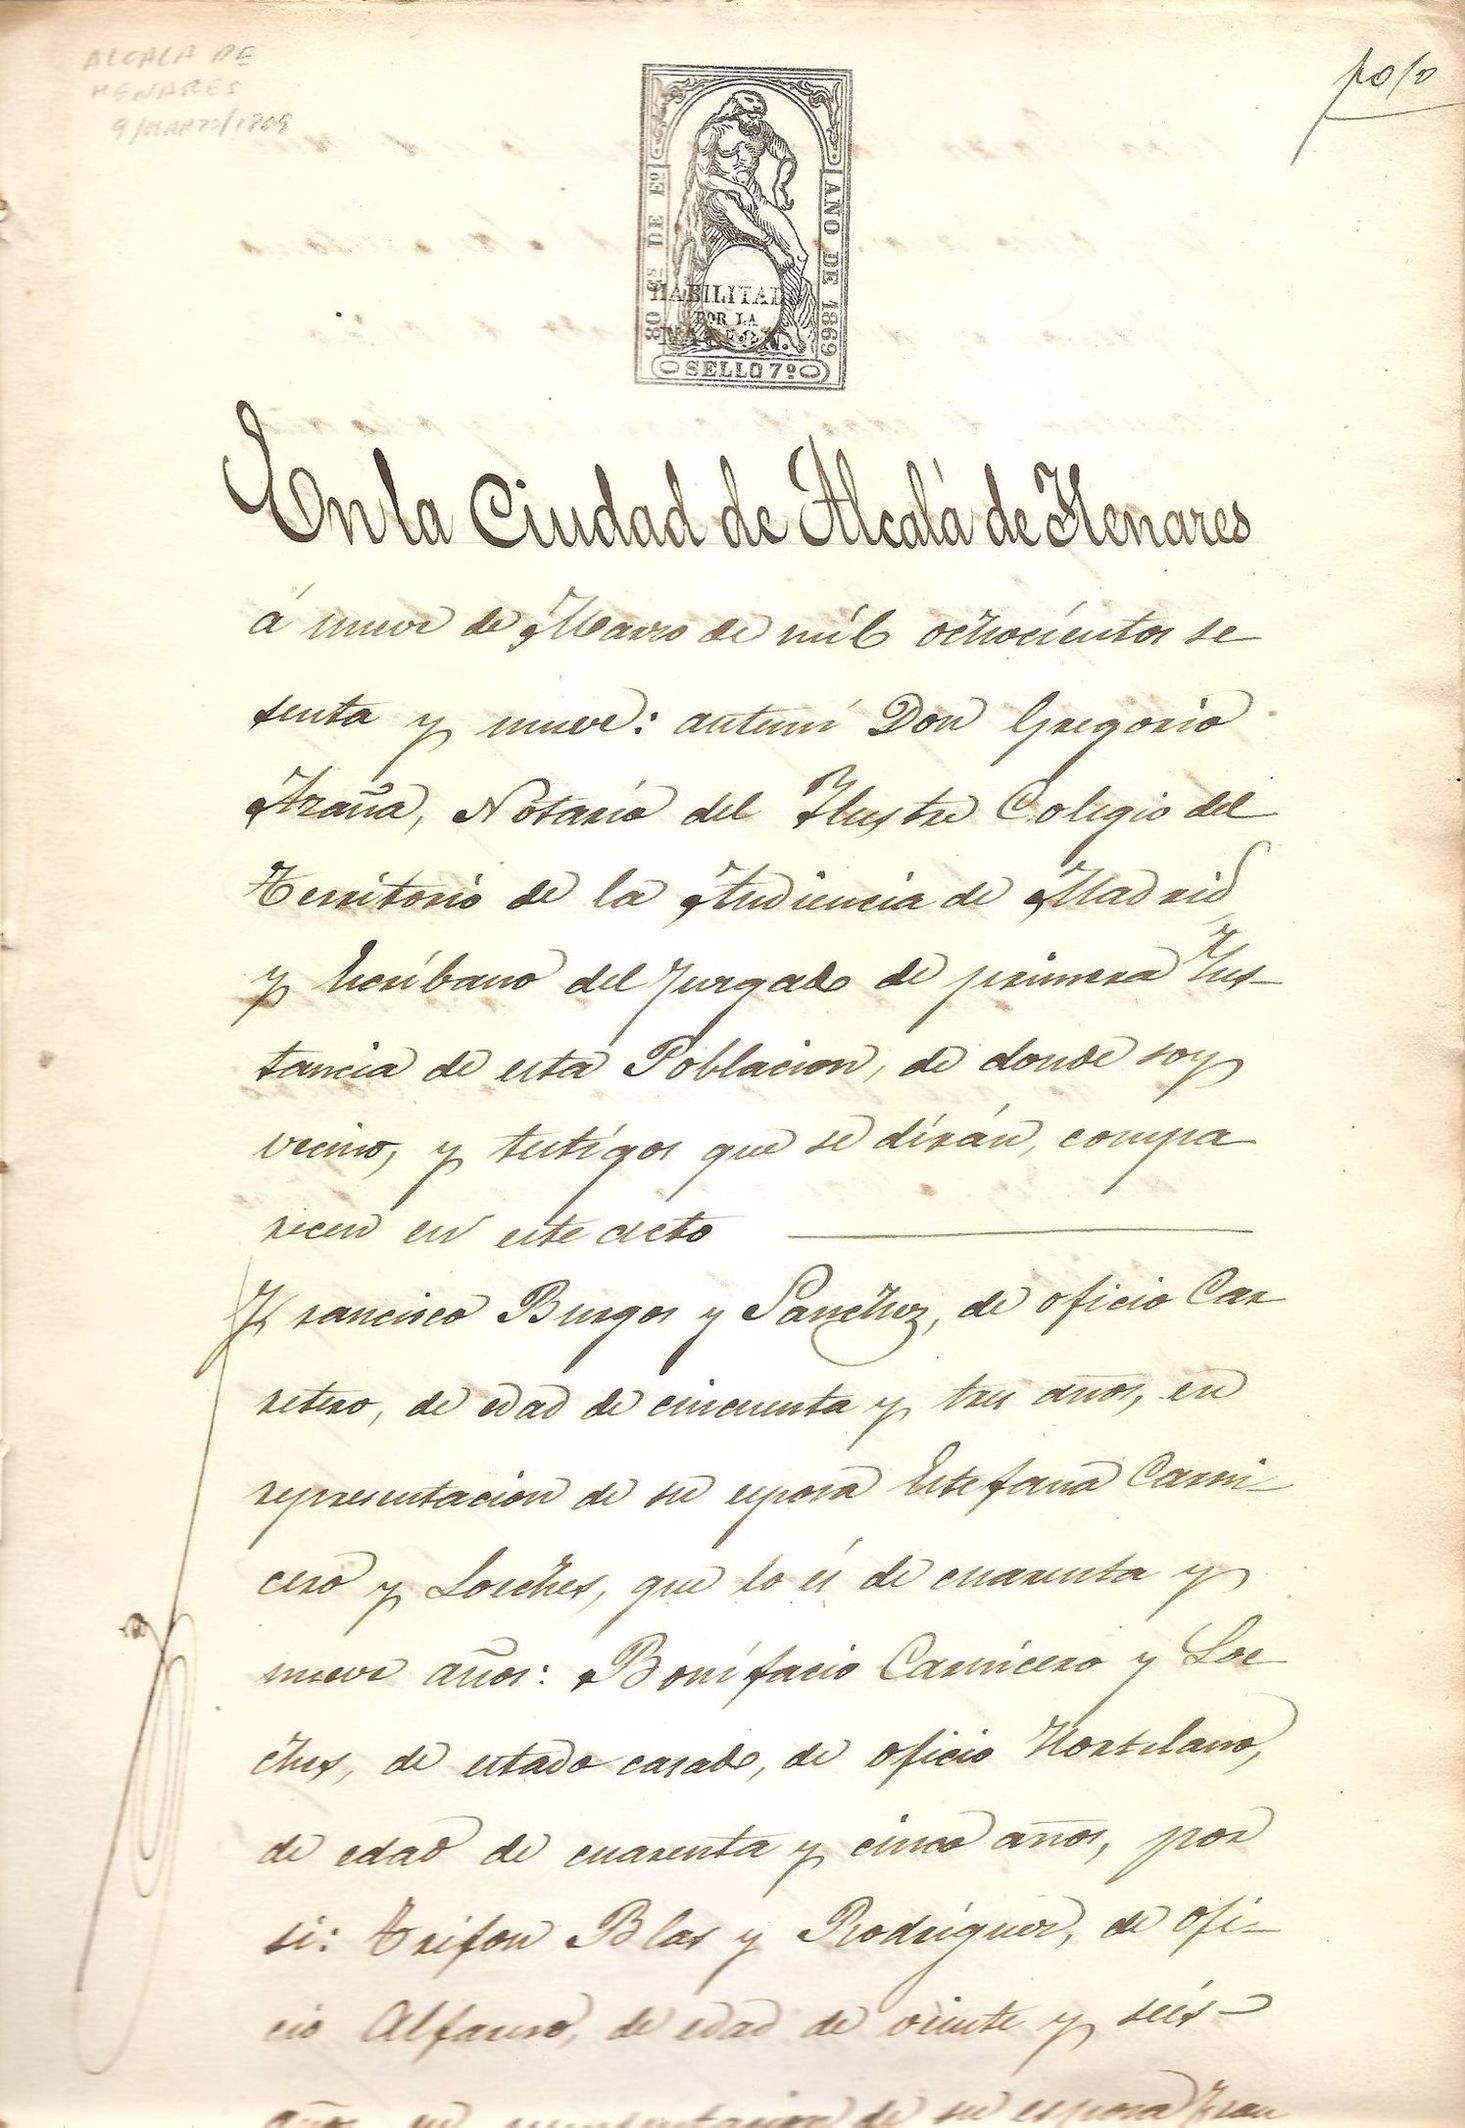 ALCALA DE
HENARES
9/MARZO/1869
80 Es. DE Eº
AÑO DE 1869
HABILITADO
POR LA
NACION.
SELLO 7º
En la Ciudad de Alcalá de Henares
á nueve de Marzo de mil ochocientos se
senta y nueve: antemi Don Gregorio
Azaña, Notario del Ilustre Colegio del
Territorio de la Audiencia de Madrid
y Escribano del Juzgado de primera Ins-
tancia de esta Poblacion, de donde soy
vecino, y testigos que se dirán, compa
recen en este acto
Francisco Burgos y Sanchez, de oficio Car
retero, de edad de cincuenta y tres años, en
representacion de su esposa Estefana Carni-
cero y Loeches, que lo és de cuarenta y
nueve años: Bonifacio Carnicero y Loe
ches, de estado casado, de oficio Hortelano,
de edad de cuarenta y cinco años, por
si: Trifon Blas y Rodriguez, de ofi-
cio Alfarero, de edad de veinte y seis
años, en representacion de su esposa Fran